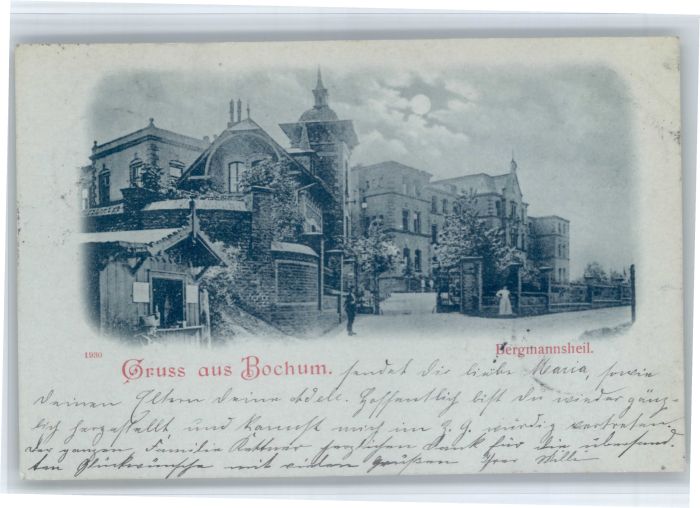 1930
Gruss aus Bochum.
Bergmannsheil.
sendet dir liebe Maria, sowie
deinen Eltern deine Adele. Hoffentlich bist du wieder gänz-
lich hergestellt und kannst mich im G. G. würdig vertreten.
Der ganzen Familie herzlichen Dank für die übersand-
ten Glückwünsche mit vielen Grüßen Ihre Willi